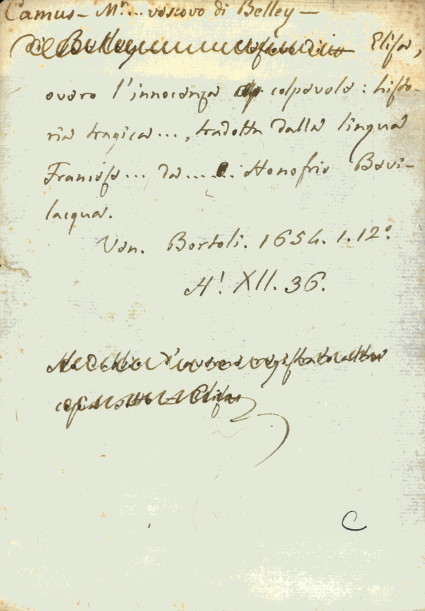 Camus - Mr... vescovo di Belley -
di Belley Elisa,
overo l'innocenza colpevole: histo-
ria tragica..., tradotta dalla lingua
Francese... da ... Honofrio Bevi-
lacqua.
Ven. Bortoli. 1654. 1. 12º
H! XII. 36.
C